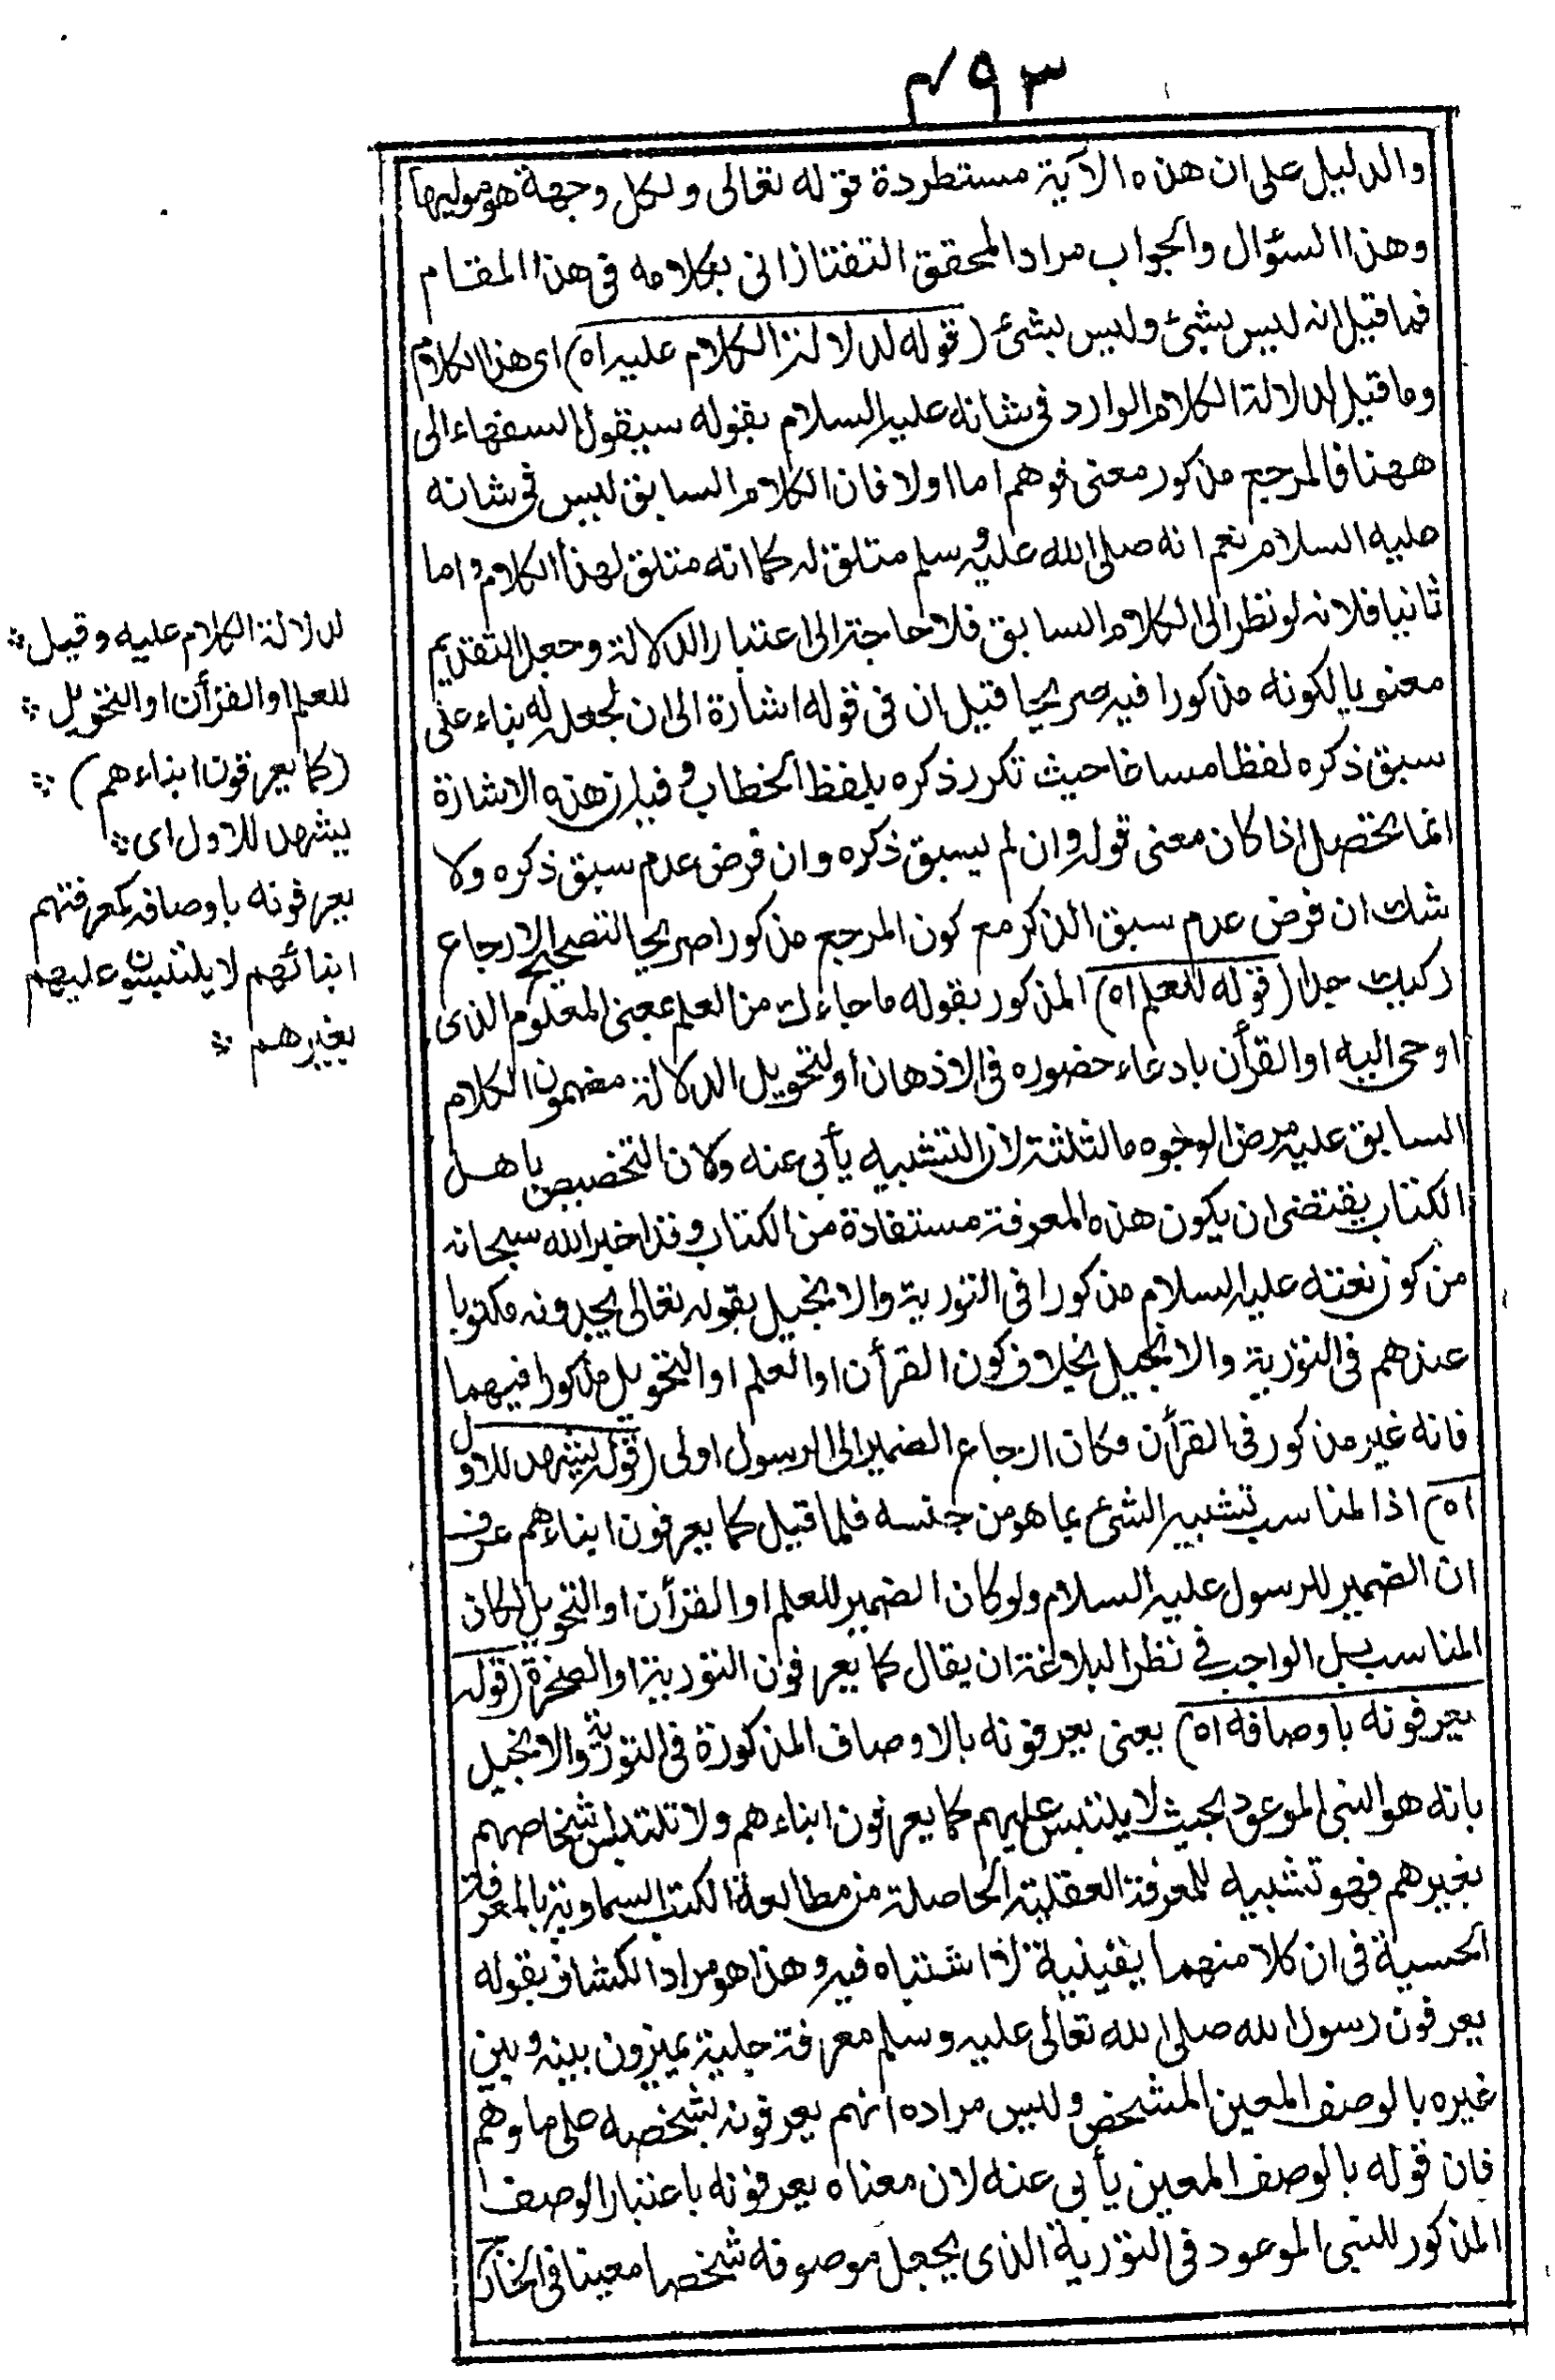 ٤٩٣
والدليل على ان هذه الآية مستطردة قوله تعالى ولكل وجهة هو موليها
وهذا السؤال والجواب مراد المحقق التفتازانى بكلامه فى هذا المقام
فما قيل انه ليس بشئ وليس بشئ (قوله لدلالة الكلام عليه اه) اى هذا الكلام
وما قيل لدلالة الكلام الوارد فى شانه عليه السلام بقوله سيقول السفهاء الى
ههنا فالمرجع مذكور معنى فوهم اما اولا فان الكلام السابق ليس فى شانه
عليه السلام نعم انه صلى الله عليه وسلم متلق له كما انه متلق لهذا الكلام واما
ثانيا فلانه لو نظر الى الكلام السابق فلا حاجة الى اعتبار الدلالة وجعل التقديم
معنويا لكونه مذكورا فيه صريحا قيل ان فى قوله اشارة الى ان لجعله له بناء على
سبق ذكره لفظا مساغا حيث تكرر ذكره بلفظ الخطاب وفيه ان هذه الاشارة
انما تحصل اذا كان معنى قوله وان لم يسبق ذكره وان فرض عدم سبق ذكره ولا
شك ان فرض عدم سبق الذكر مع كون المرجع مذكورا صريحا لتصحيح الارجاع
ركيك جدا (قوله للعلم اه) المذكور بقوله ما جاءك من العلم بمعنى المعلوم الذى
اوحى اليه او القرأن بادعاء حضوره فى الاذهان او لتحويل الدلالة مضمون الكلام
السابق عليه مرض الوجوه الثلثة لان التشبيه يأبى عنه ولان التخصيص باهل
الكتاب يقتضى ان يكون هذه المعرفة مستفادة من الكتاب وقد اخبر الله سبحانه
من كون نعته عليه السلام مذكورا فى التورية والانجيل بقوله تعالى يجدونه مكتوبا
عندهم فى التورية والانجيل بخلاف كون القرأن او العلم او التحويل مذكورا فيهما
فانه غير مذكور فى القرأن فكان ارجاع الضمير الى الرسول اولى (قوله يشهد للاول
اه) اذ المناسب تشبيه الشئ بما هو من جنسه فلما قيل كما يعرفون ابناءهم عرف
ان الضمير للرسول عليه السلام ولو كان الضمير للعلم او القرأن او التحويل لكان
المناسب بل الواجب فى نظر البلاغة ان يقال كما يعرفون التورية او الصخرة (قوله
يعرفونه باوصافه اه) يعنى يعرفونه بالاوصاف المذكورة فى التورية والانجيل
بانه هو النبى الموعود بحيث لا يلتبس عليهم كما يعرفون ابناءهم ولا تلتبس اشخاصهم
بغيرهم فهو تشبيه للمعرفة العقلية الحاصلة من مطالعة الكتب السماوية بالمعرفة
الحسية فى ان كلا منهما يقينية لا اشتباه فيه وهذا هو مراد الكشاف بقوله
يعرفون رسول الله صلى الله تعالى عليه وسلم معرفة جلية يميزون بينه وبين
غيره بالوصف المعين المشخص وليس مراده انهم يعرفونه بشخصه على ما وهم
فان قوله بالوصف المعين يأبى عنه لان معناه يعرفونه باعتبار الوصف
المذكور للنبى الموعود فى التورية الذى يجعل موصوفه شخصا معينا فى الخارج
لدلالة الكلام عليه وقيل
للعلم او القرأن او التحويل
(كما يعرفون ابناءهم)
يشهد للاول اى
يعرفونه باوصافه كمعرفتهم
ابنائهم لا يلتبسون عليهم
بغيرهم